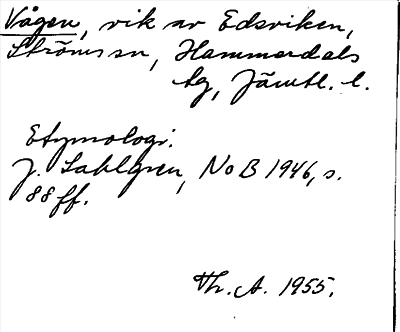 Vågen, vik av Edsviken,
Ströms sn, Hammerdals
tg, Jämtl. l.
Etymologi.
J. Sahlgren, NoB 1946, s.
88 ff.
Th. A. 1955.